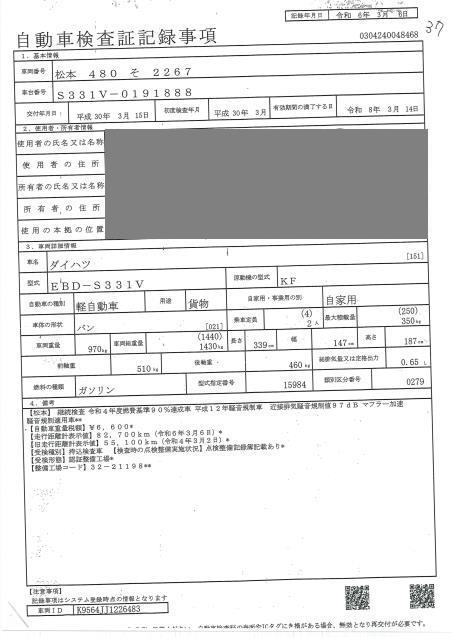 記録年月日 令和 6年 3月 6日
37
自動車検査証記録事項
0304240048468
1. 基本情報
車両番号 松本 480 そ 2267
車台番号 S331V-0191888
交付年月日 平成 30年 3月 15日 初度検査年月 平成 30年 3月 有効期間の満了する日 令和 8年 3月 14日
2. 使用者・所有者情報
使用者の氏名又は名称
使用者の住所
所有者の氏名又は名称
所有者の住所
使用の本拠の位置
3. 車両詳細情報
車名 ダイハツ [151]
型式 EBD-S331V 原動機の型式 KF
自動車の種別 軽自動車 用途 貨物 自家用・事業用の別 自家用
車体の形状 バン [021] 乗車定員 (4) 2人 最大積載量 (250) 350kg
車両重量 970kg 車両総重量 (1440) 1430kg 長さ 339cm 幅 147cm 高さ 187cm
前軸重 510kg 後軸重 460kg 総排気量又は定格出力 0.65 L
燃料の種類 ガソリン 型式指定番号 15984 類別区分番号 0279
4. 備考
【松本】 継続検査 令和4年度燃費基準90%達成車 平成12年騒音規制車 近接排気騒音規制値97dB マフラー加速
騒音規制適用車**
【自動車重量税額】¥6,600*
【走行距離計表示値】82,700km(令和6年3月6日)*
【旧走行距離計表示値】55,100km(令和4年3月2日)*
【受検種別】持込検査車 【検査時の点検整備実施状況】点検整備記録簿記載あり*
【受検形態】認証整備工場*
【整備工場コード】32-21198**
【注意事項】
記録事項はシステム登録時点の情報となります
車両ID K9564JJ1226483